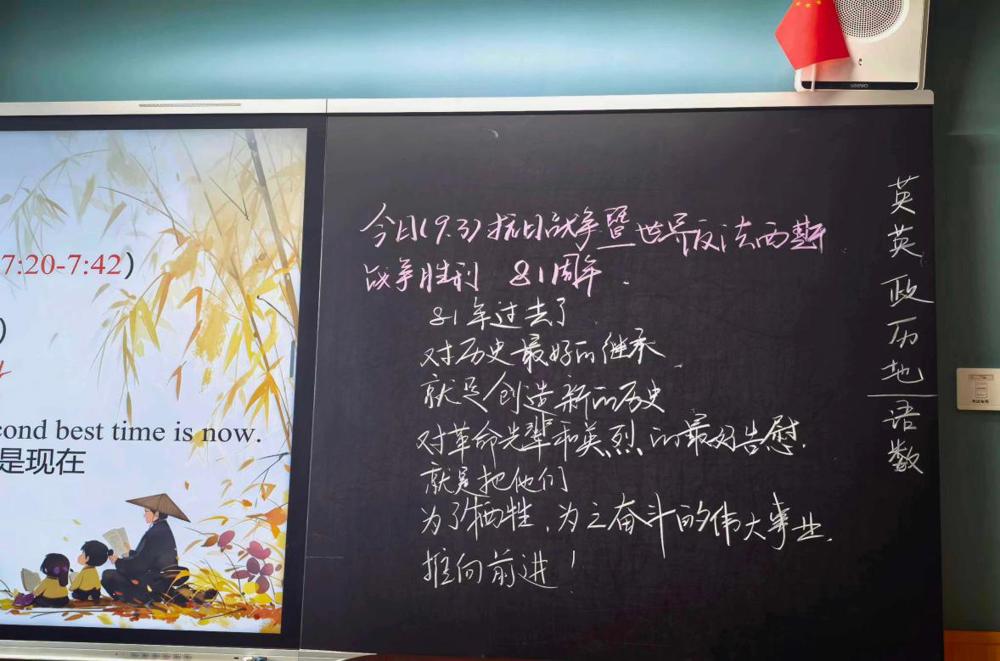 7:20-7:42）
）
cond best time is now.
是现在
今日(9.3)抗日战争暨世界反法西斯
战争胜利 81周年.
81年过去了
对历史最好的继承
就是创造新的历史
对革命先辈和英烈的最好告慰.
就是把他们
为了牺牲,为之奋斗的伟大事业.
推向前进!
英
英
政
历
地
语
数